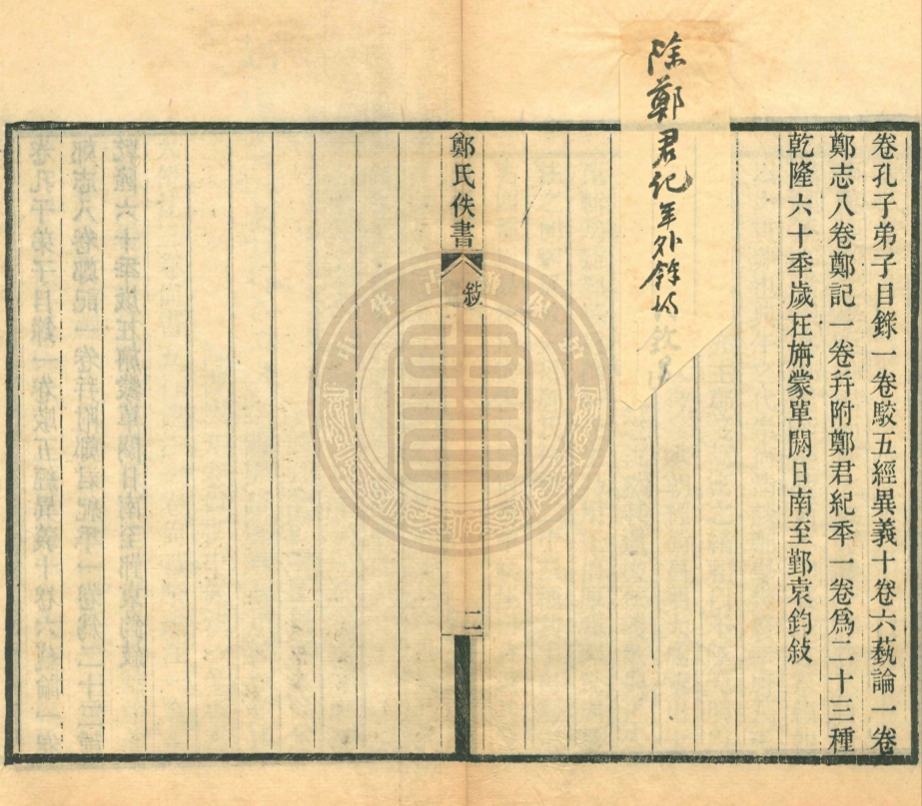 卷孔子弟子目錄一卷駮五經異義十卷六蓺論一卷
鄭志八卷鄭記一卷幷附鄭君紀秊一卷爲二十三種
乾隆六十秊歲在旃蒙單閼日南至鄞袁鈞敍
除鄭君記年外餘均
鄭氏佚書
敍
二